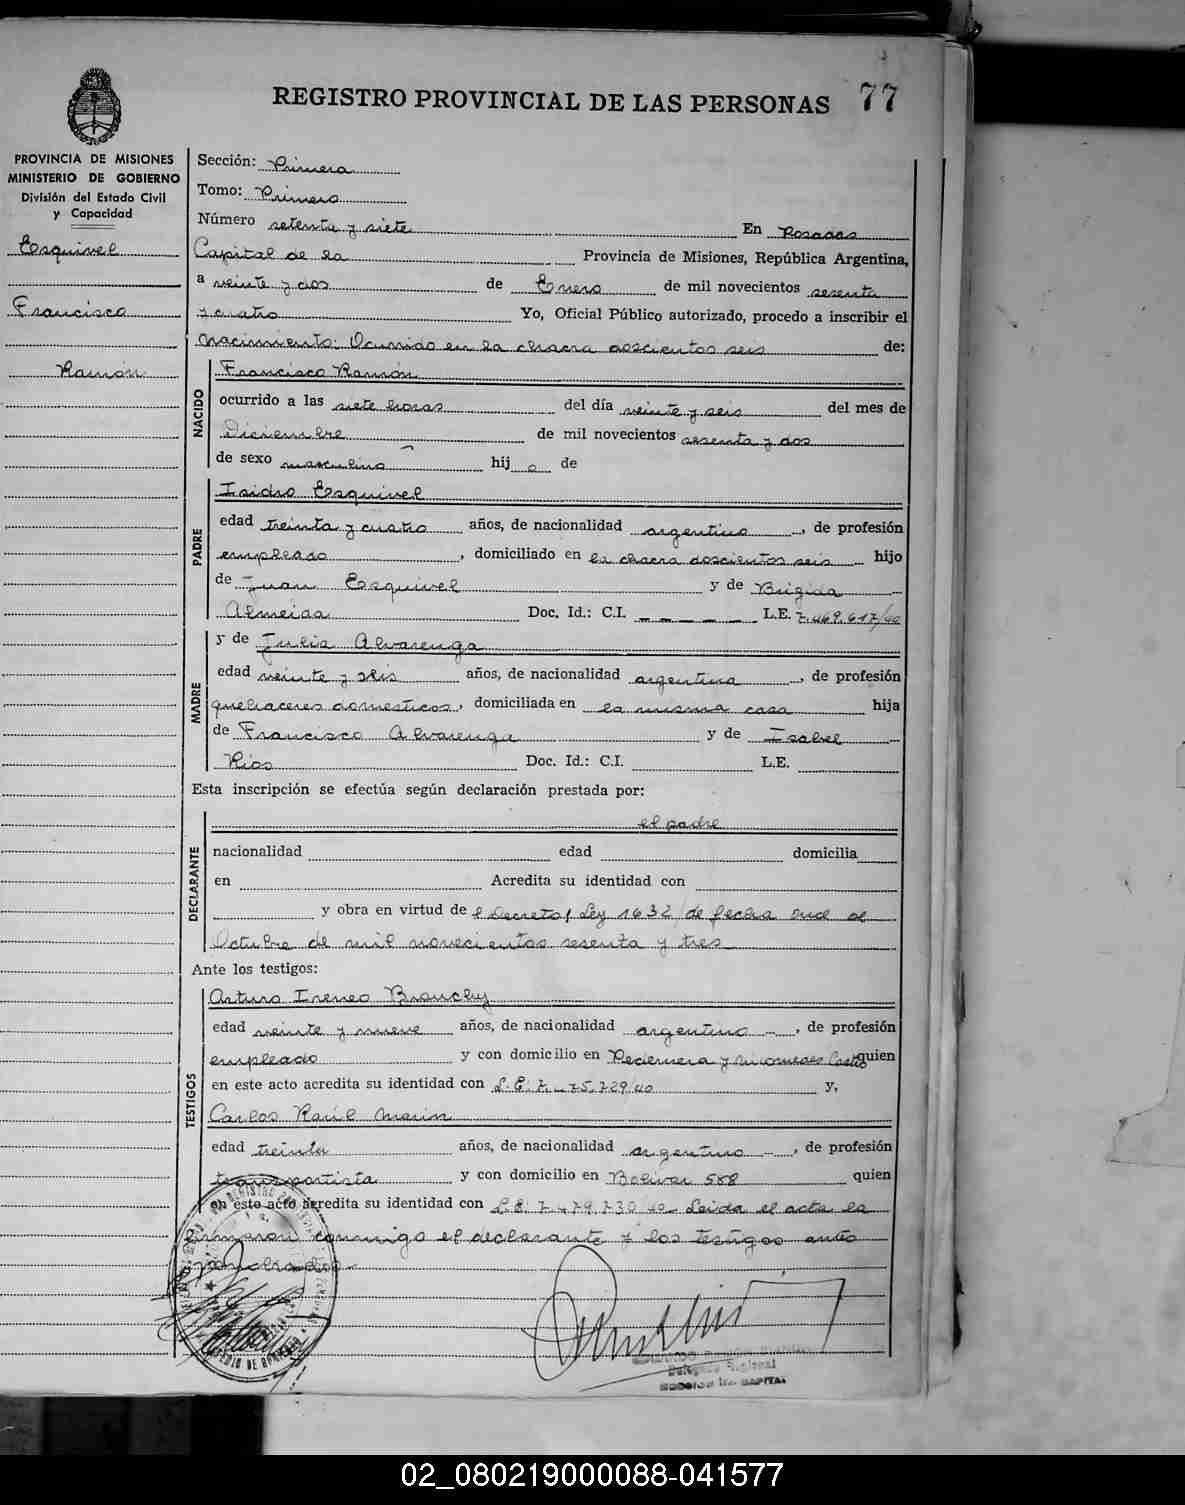 REGISTRO PROVINCIAL DE LAS PERSONAS 77
PROVINCIA DE MISIONES
MINISTERIO DE GOBIERNO
División del Estado Civil
y Capacidad
Esquivel
Francisco
Ramón
Sección: Primera
Tomo: Primero
Número setenta y siete En Posadas
Capital de la Provincia de Misiones, República Argentina,
a veinte y dos de Enero de mil novecientos sesenta
y cuatro Yo, Oficial Público autorizado, procedo a inscribir el
Nacimiento: Ocurrido en la chacra doscientos seis de:
NACIDO
Francisco Ramón
ocurrido a las siete horas del día veinte y seis del mes de
Diciembre de mil novecientos sesenta y dos
de sexo masculino hijo de
PADRE
Isidro Esquivel
edad treinta y cuatro años, de nacionalidad argentino, de profesión
empleado, domiciliado en la chacra doscientos seis hijo
de Juan Esquivel y de Brigida
Almeida Doc. Id.: C.I. — — — — — L.E. 7.469.617/40
MADRE
y de Julia Alvarenga
edad veinte y seis años, de nacionalidad argentina, de profesión
quehaceres domesticos, domiciliada en la misma casa hija
de Francisco Alvarenga y de Isabel
Rios Doc. Id.: C.I. L.E.
Esta inscripción se efectúa según declaración prestada por:
DECLARANTE
el padre
nacionalidad edad domicilia
en Acredita su identidad con
y obra en virtud del Decreto/Ley 1632/de fecha de
Octubre de mil novecientos sesenta y tres
Ante los testigos:
TESTIGOS
Arturo Ireneo Brouchy
edad veinte y nueve años, de nacionalidad argentino, de profesión
empleado y con domicilio en Pedernera y Nicomedes Castro quien
en este acto acredita su identidad con L.E. 7. 75.729/40 y,
Carlos Raúl Marin
edad treinta años, de nacionalidad argentino, de profesión
transportista y con domicilio en Bolivar 588 quien
en este acto acredita su identidad con L.E. 7.479.730/40 Leida el acta la
firmaron conmigo el declarante y los testigos antes
nombrados
Delegado Regional
CAPITAL
02_080219000088-041577